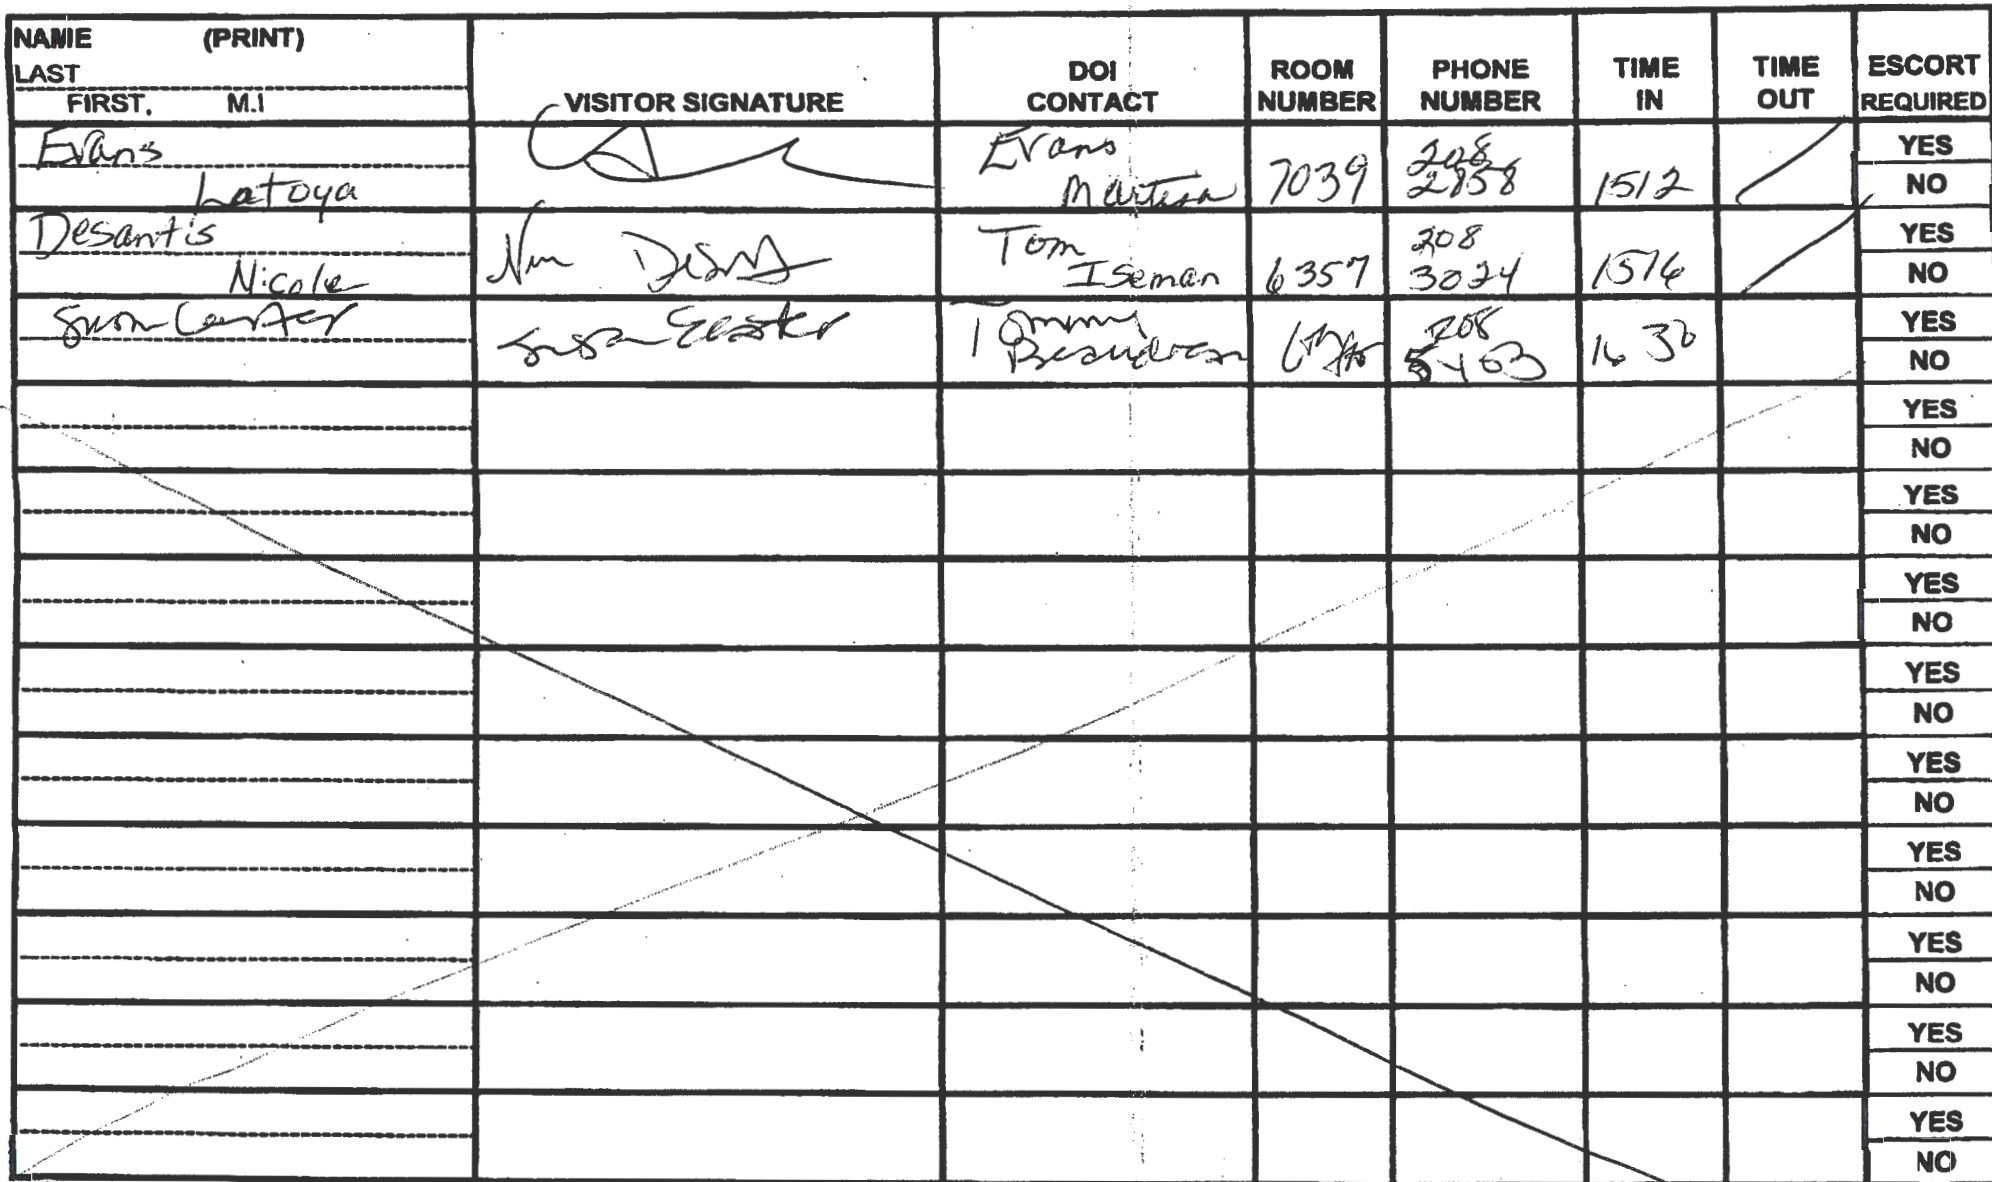 NAME (PRINT)
LAST
FIRST, M.I
VISITOR SIGNATURE
DOI
CONTACT
ROOM
NUMBER
PHONE
NUMBER
TIME
IN
TIME
OUT
ESCORT
REQUIRED
Evans
Latoya
Evans
7039
208
2858
1512
YES
NO
Desantis
Nicole
Tom
Iseman
6357
208
3024
1516
YES
NO
Susan
Tommy
Beaudreau
208
5403
1630
YES
NO
YES
NO
YES
NO
YES
NO
YES
NO
YES
NO
YES
NO
YES
NO
YES
NO
YES
NO